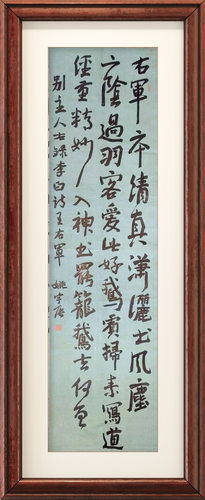 右軍本清真瀟灑出風塵
山陰過羽客愛此好鵝賓掃素寫道
經筆精妙入神書罷籠鵝去何曾
別主人右錄李白詩王右軍
姚宇啟